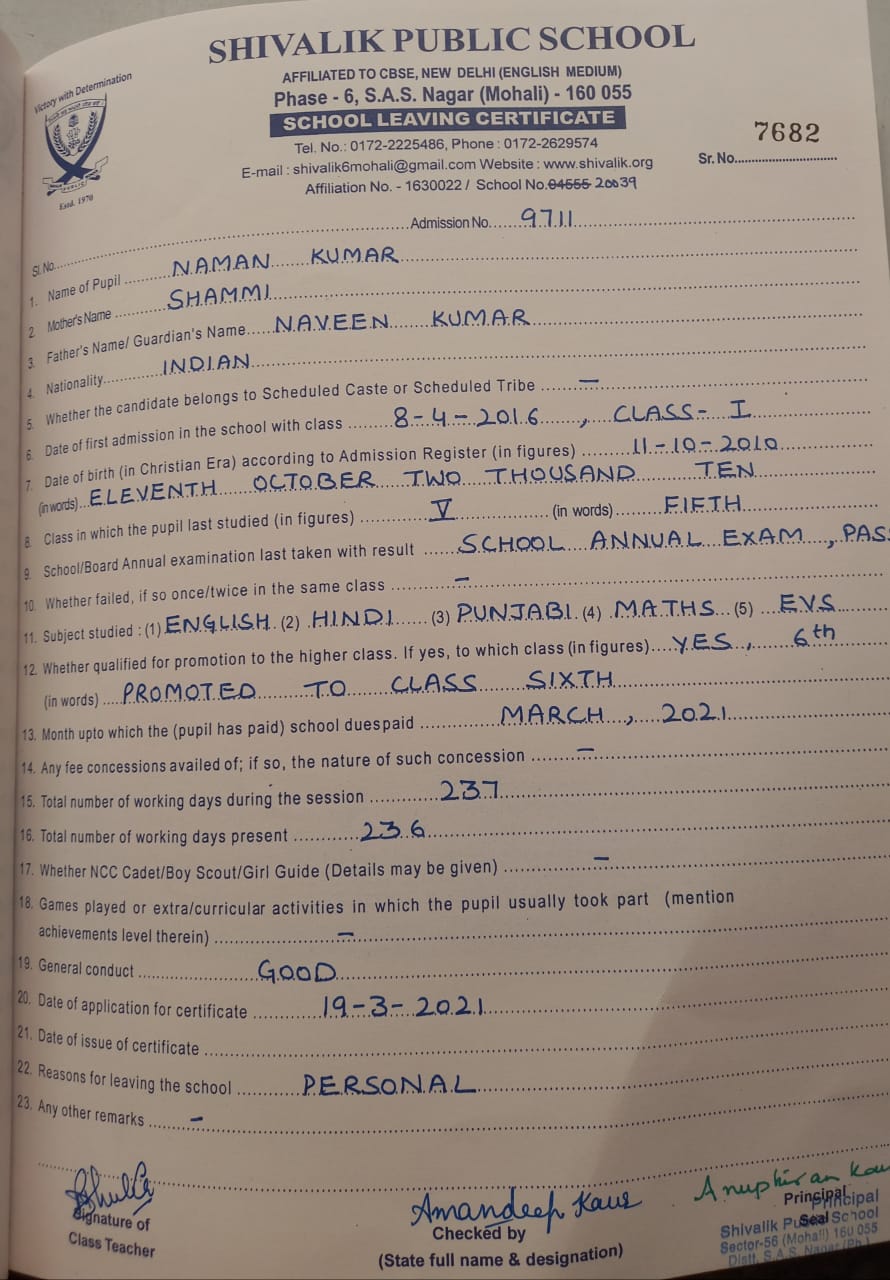 SHIVALIK PUBLIC SCHOOL
Victory with Determination
AFFILIATED TO CBSE, NEW DELHI (ENGLISH MEDIUM)
Phase - 6, S.A.S. Nagar (Mohali) - 160 055
SCHOOL LEAVING CERTIFICATE
Tel. No.: 0172-2225486, Phone : 0172-2629574
E-mail : shivalik6mohali@gmail.com Website : www.shivalik.org
Affiliation No. - 1630022 / School No. 04555 20039
7682
Sr. No.
Estd. 1970
Sl. No. Admission No. 9711
1. Name of Pupil NAMAN KUMAR
2. Mother's Name SHAMMI
3. Father's Name/ Guardian's Name NAVEEN KUMAR
4. Nationality INDIAN
5. Whether the candidate belongs to Scheduled Caste or Scheduled Tribe –
6. Date of first admission in the school with class 8-4-2016, CLASS- I
7. Date of birth (in Christian Era) according to Admission Register (in figures) 11-10-2010
(in words) ELEVENTH OCTOBER TWO THOUSAND TEN
8. Class in which the pupil last studied (in figures) V (in words) FIFTH
9. School/Board Annual examination last taken with result SCHOOL ANNUAL EXAM, PASS
10. Whether failed, if so once/twice in the same class –
11. Subject studied : (1) ENGLISH (2) HINDI (3) PUNJABI (4) MATHS (5) EVS
12. Whether qualified for promotion to the higher class. If yes, to which class (in figures) YES, 6th
(in words) PROMOTED TO CLASS SIXTH
13. Month upto which the (pupil has paid) school duespaid MARCH, 2021
14. Any fee concessions availed of; if so, the nature of such concession –
15. Total number of working days during the session 237
16. Total number of working days present 236
17. Whether NCC Cadet/Boy Scout/Girl Guide (Details may be given) –
18. Games played or extra/curricular activities in which the pupil usually took part (mention
achievements level therein) –
19. General conduct GOOD
20. Date of application for certificate 19-3-2021
21. Date of issue of certificate
22. Reasons for leaving the school PERSONAL
23. Any other remarks –
Signature of
Class Teacher
Amandeep Kaur
Checked by
(State full name & designation)
Anupkiran Kaur
Principal
Seal
Principal
Shivalik Public School
Sector-56 (Mohali) 160 055
Distt. S.A.S. Nagar (Pb.)